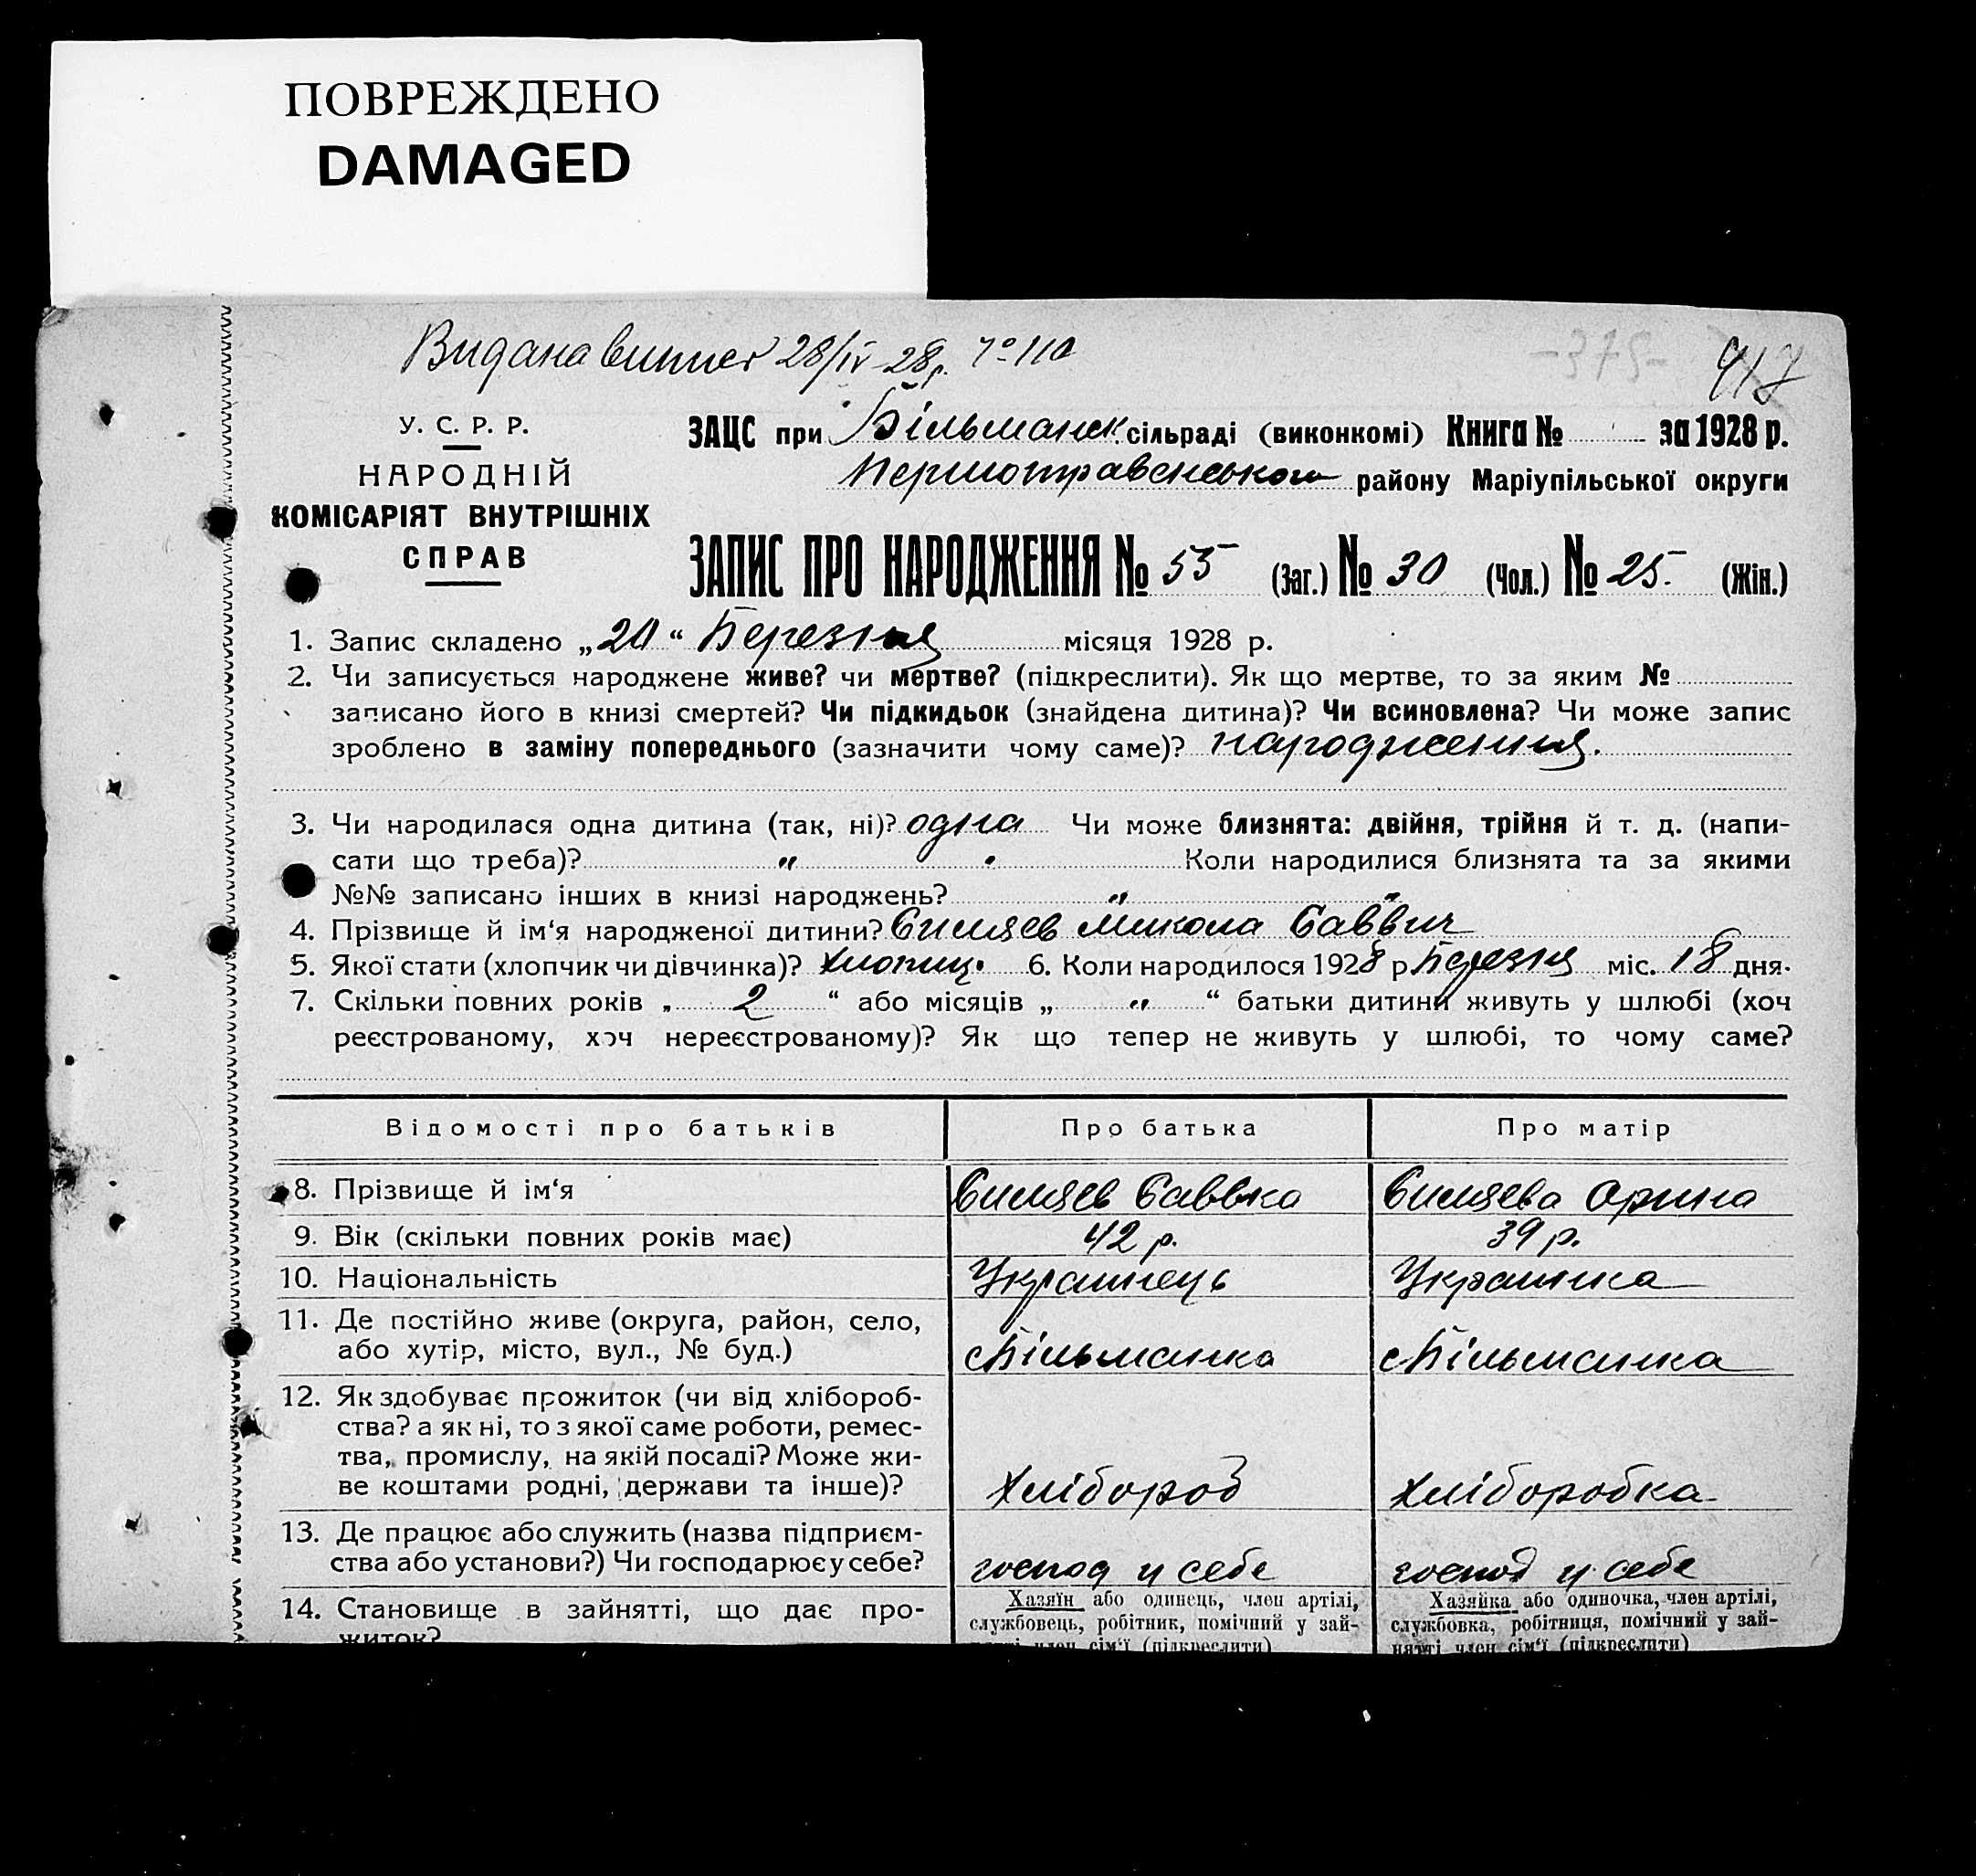 ПОВРЕЖДЕНО
DAMAGED
Видана 28/IV-28р. №110
-375-
417
У. С. Р. Р.
НАРОДНІЙ
КОМІСАРІЯТ ВНУТРІШНІХ
СПРАВ
ЗАЦС при Більманск. сільраді (виконкомі) Книга № за 1928 р.
Першотравенського району Маріупільської округи
ЗАПИС ПРО НАРОДЖЕННЯ № 55 (Заг.) № 30 (Чол.) № 25. (Жін.)
1. Запис складено „20“ Березня місяця 1928 р.
2. Чи записується народжене живе? чи мертве? (підкреслити). Як що мертве, то за яким №
записано його в книзі смертей? Чи підкидьок (знайдена дитина)? Чи всиновлена? Чи може запис
зроблено в заміну попереднього (зазначити чому саме)? народження.
3. Чи народилася одна дитина (так, ні)? одна Чи може близнята: двійня, трійня й т. д. (напи-
сати що треба)? „ Коли народилися близнята та за якими
№№ записано інших в книзі народжень? „ „
4. Прізвище й ім‘я народженої дитини? Микола Саввич
5. Якої стати (хлопчик чи дівчинка)? Хлопиць 6. Коли народилося 1928 р. Березня міс. 18 дня.
7. Скільки повних років „ 2 “ або місяців „ „ “ батьки дитини живуть у шлюбі (хоч
реєстрованому, хоч нереєстрованому)? Як що тепер не живуть у шлюбі, то чому саме?
Відомості про батьків Про батька Про матір
8. Прізвище й ім‘я Саввка Орина
9. Вік (скільки повних років має) 42 р. 39 р.
10. Національність Украинець Украинка
11. Де постійно живе (округа, район, село,
або хутір, місто, вул., № буд.) с Більманка с Більманка
12. Як здобуває прожиток (чи від хлібороб-
ства? а як ні, то з якої саме роботи, ремес-
тва, промислу, на якій посаді? Може жи-
ве коштами родні, держави та інше)? Хлібороб Хліборобка
13. Де працює або служить (назва підприєм-
ства або установи?) Чи господарює у себе? господ у себе господ у себе
14. Становище в зайнятті, що дає про-
житок?
Хазяїн або одинець, член артілі,
службовець, робітник, помічний у зай-
нятті член сім‘ї (підкреслити)
Хазяйка або одиночка, член артілі,
службовка, робітниця, помічний у зай-
нятті член сім‘ї (підкреслити)